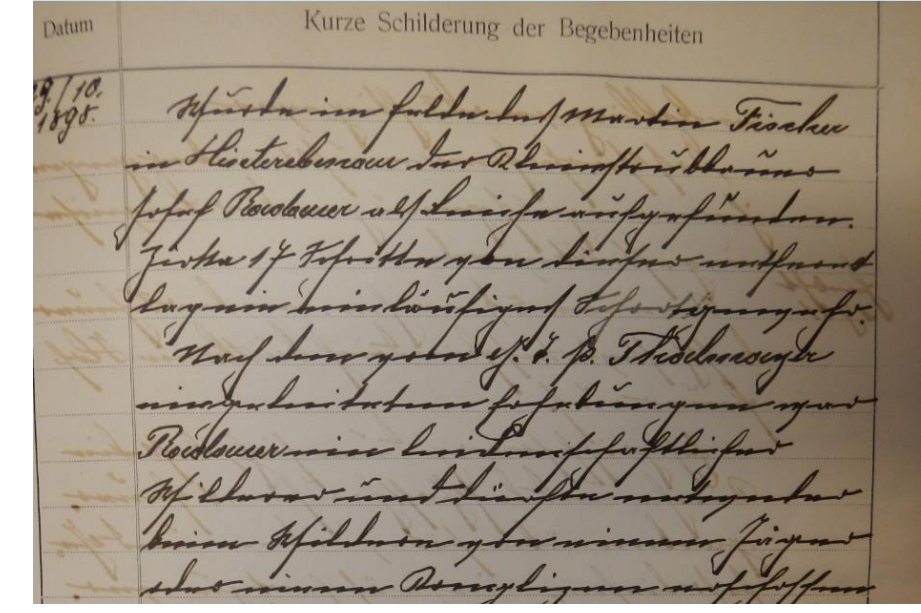 Datum
Kurze Schilderung der Begebenheiten
29./10.
1898.
Wurde im Felde des Martin Fischer
in der Kleinhäusler
Josef als Leiche aufgefunden.
Zirka 17 Schritte von dieser entfernt
lag ein einläufiges Schrotgewehr.
Nach dem vom
eingeleiteten Erhebungen war
ein leidenschaftlicher
Wilderer und dürfte entweder
beim Wildern von einem Jäger
oder einem Komplizen erschossen